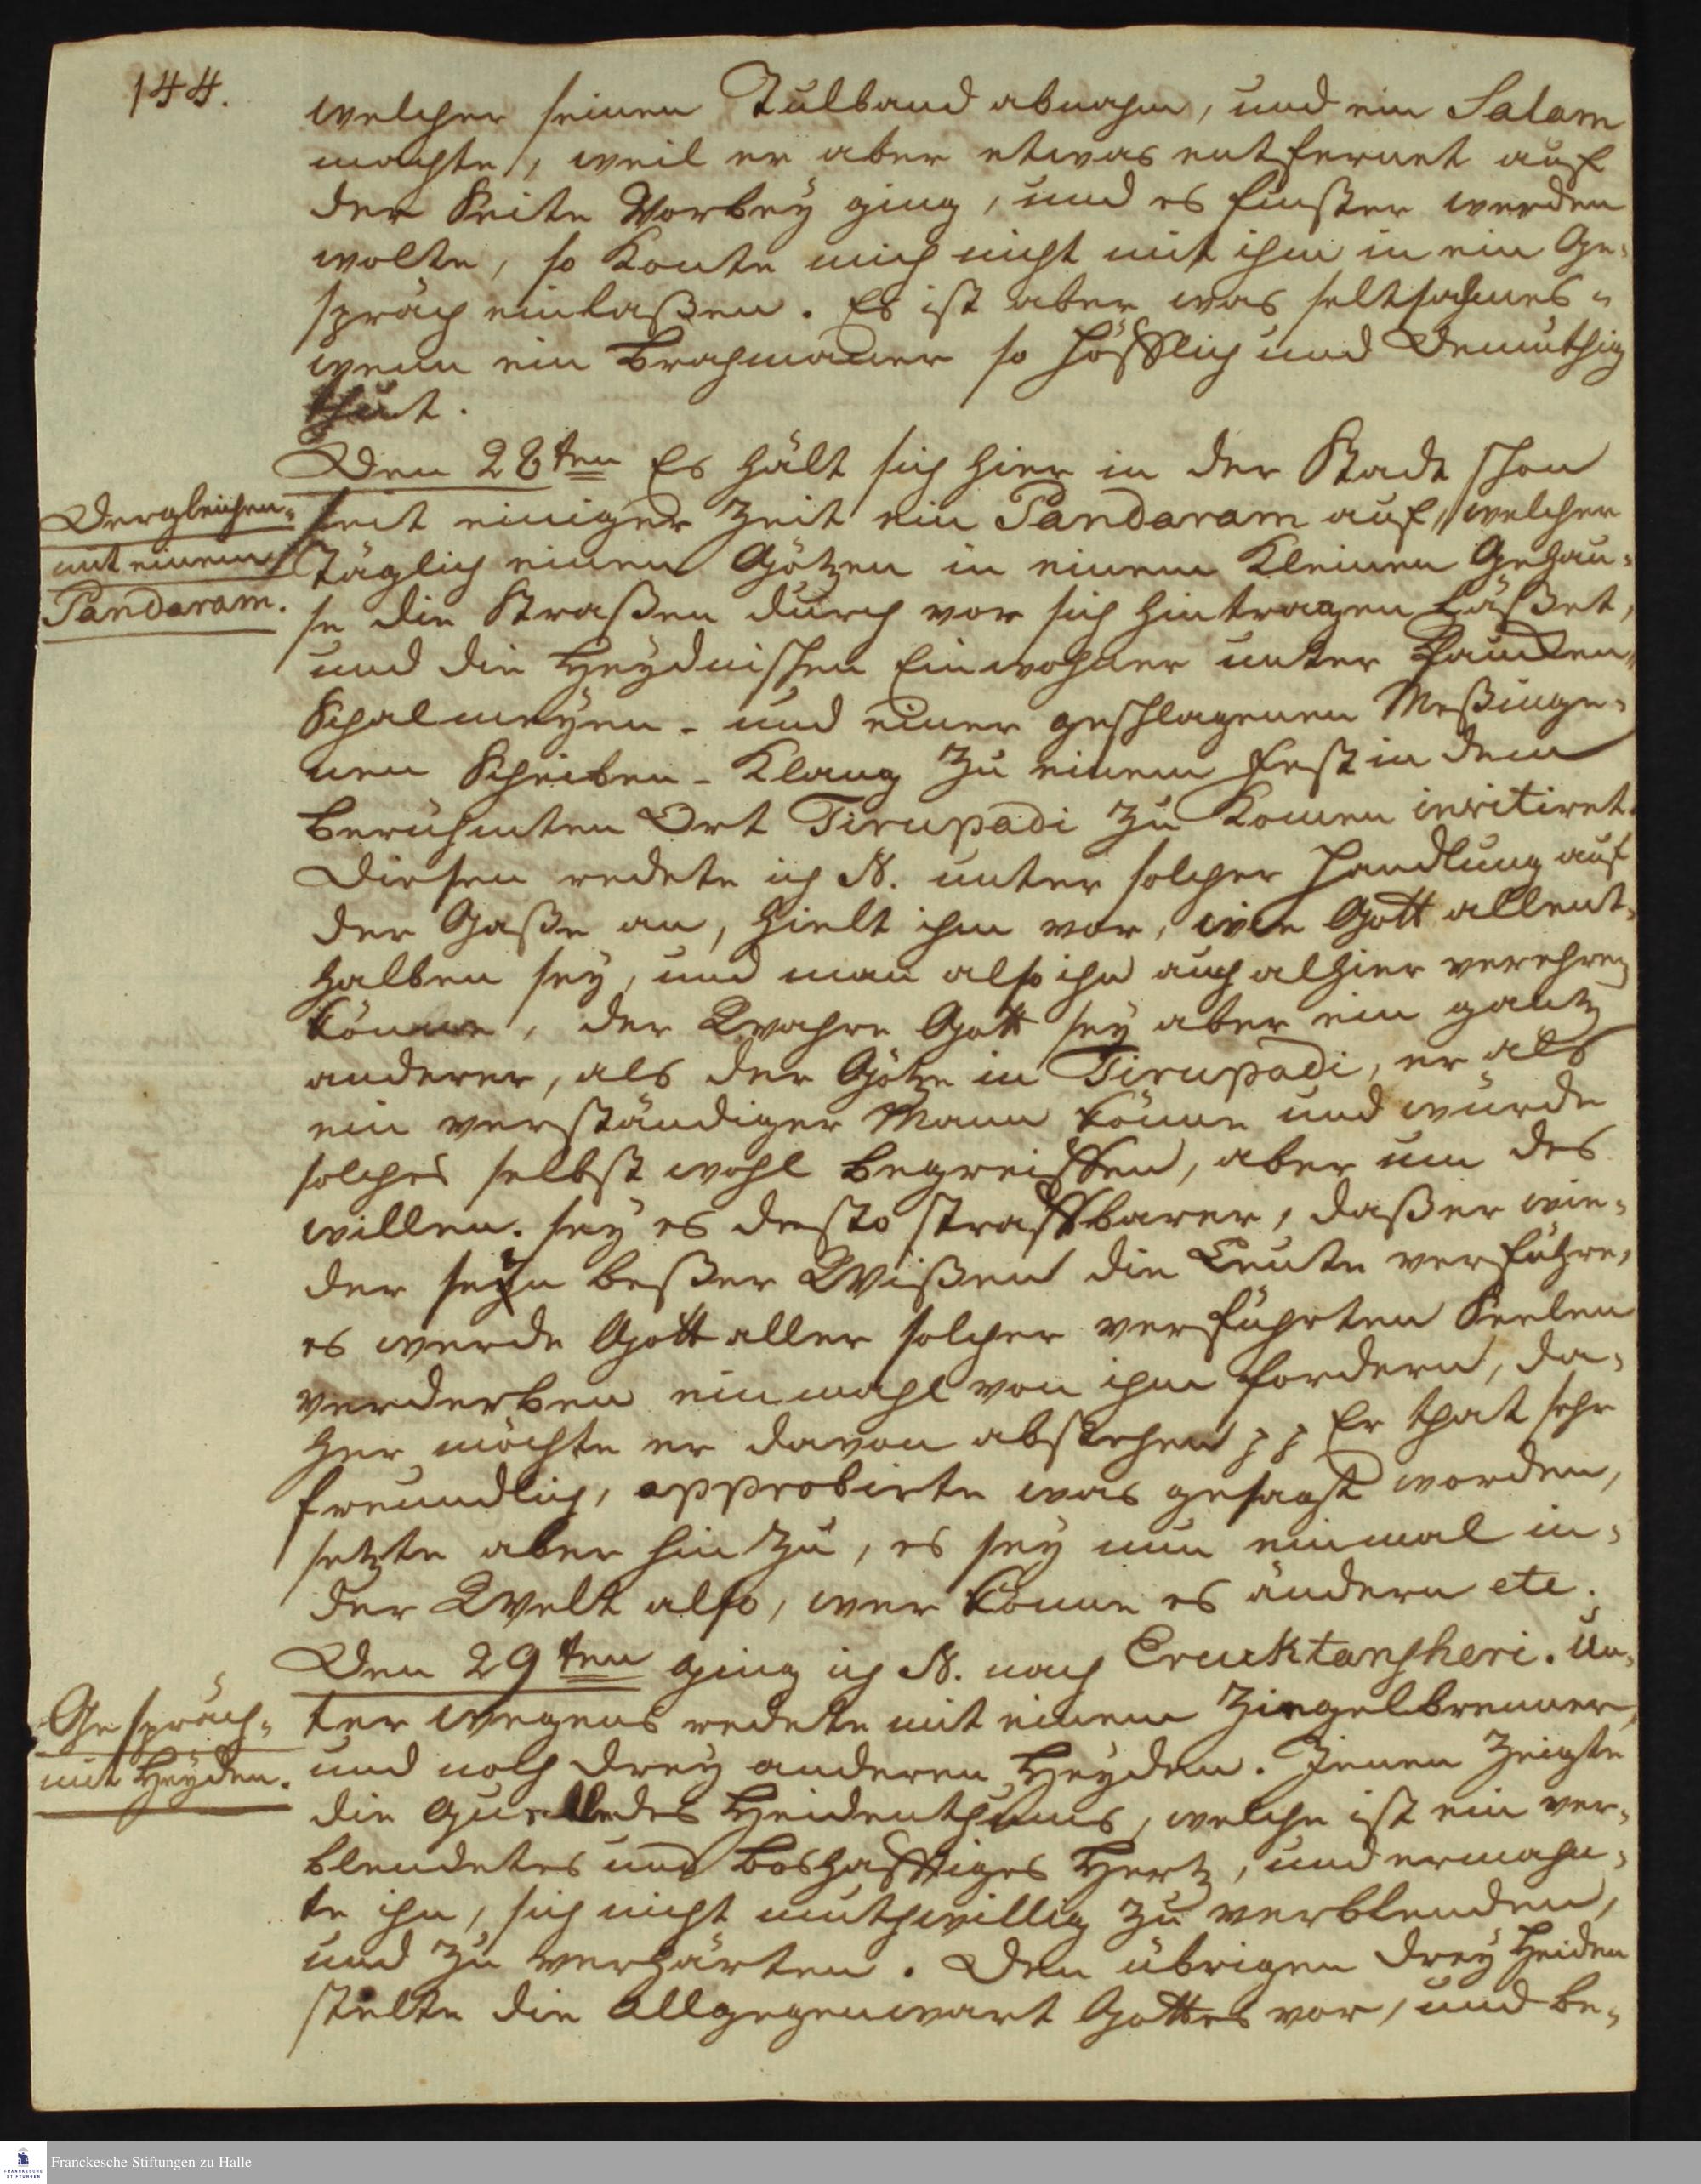 144.
welcher seinen Tulband abnahm, und ein Salam
machte, weil er aber etwas entfernet auf
der Seite Vorbey ging, und es finster werden
wolte, so Konte mich nicht mit ihm in ein Ge-
spräch einlaßen. Es ist aber was seltsahmes
wenn ein Brachmaner so höfflich und Demüthig
thut.
Den 28ten Es hält sich hier in der Stadt schon
Dergleichen
mit einem
Pandaram.
seit einiger Zeit ein Pandaram auf, welcher
Täglich einen Götzen in einem Kleinen Gehäu-
se die Straßen durch vor sich hintragen Läßet,
und die Heydnischen Einwohner unter Paucken,
Schalmeyen- und einer geschlagenen Meßinge-
nen Scheiben-Klang Zu einem Fest in dem
berühmten Ort Tirupadi Zu Komen invitiret.
Diesen redete ich N. unter solcher Handlung auf
der Gaße an, hielt ihm vor, wie Gott allent-
halben sey, und man also ihn auch alhier verehren
könne, der Wahre Gott sey aber ein gantz
anderer, als der Götze in Tirupadi, er als
ein verständiger Mann könne und würde
solches selbst wohl begreiffen, aber um des
willen sey es desto straffbarer, daß er wie-
der sein beßer Wißen die Leute verführe,
es werde Gott aller solcher verführten Seelen
verderben einmahl von ihm fordern, da-
her möchte er davon abstehen pp Er that sehr
freundlich, approbirte was gesagt worden,
setzte aber hin Zu, es sey nun einmal in
der Welt also, wer könne es ändern etc.
Den 29ten ging ich N. nach Erucktanscheri. Un-
Gespräch
mit Heyden.
ter wegens redete mit einem Ziegelbrenner,
und noch drey anderen Heyden. Jenen Zeigte
die Quelle des Heidenthums, welche ist ein ver-
blendetes und boshafftiges Hertz, und ermahn-
te ihn, sich nicht muthwillig Zu verblenden,
und Zu verhärten. Den übrigen drey Heiden
stelte die Allgegenwart Gottes vor, und be-
Franckesche Stiftungen zu Halle